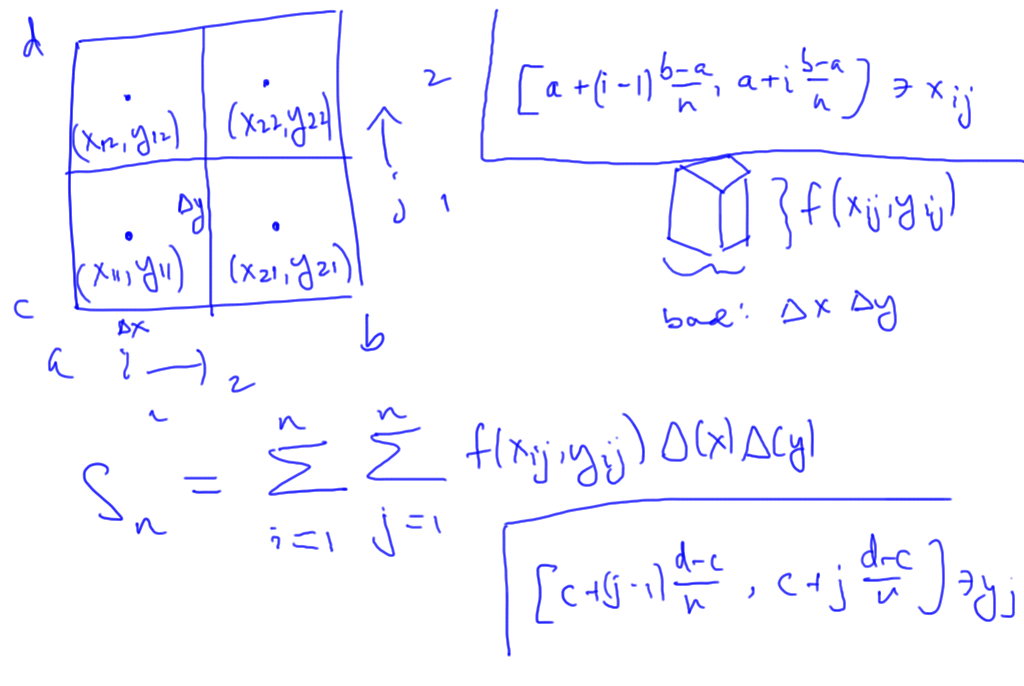 d
(x12, y12) (x22, y22)
2
↑
j 1
Δy
(x11, y11) (x21, y21)
c
Δx
a i → 2 b
1
[a + (i-1) (b-a)/n, a + i (b-a)/n] ∋ x_ij
} f(x_ij, y_ij)
base: Δx Δy
S_n = Σ_{i=1}^{n} Σ_{j=1}^{n} f(x_ij, y_ij) Δ(x) Δ(y)
[c + (j-1) (d-c)/n, c + j (d-c)/n] ∋ y_j